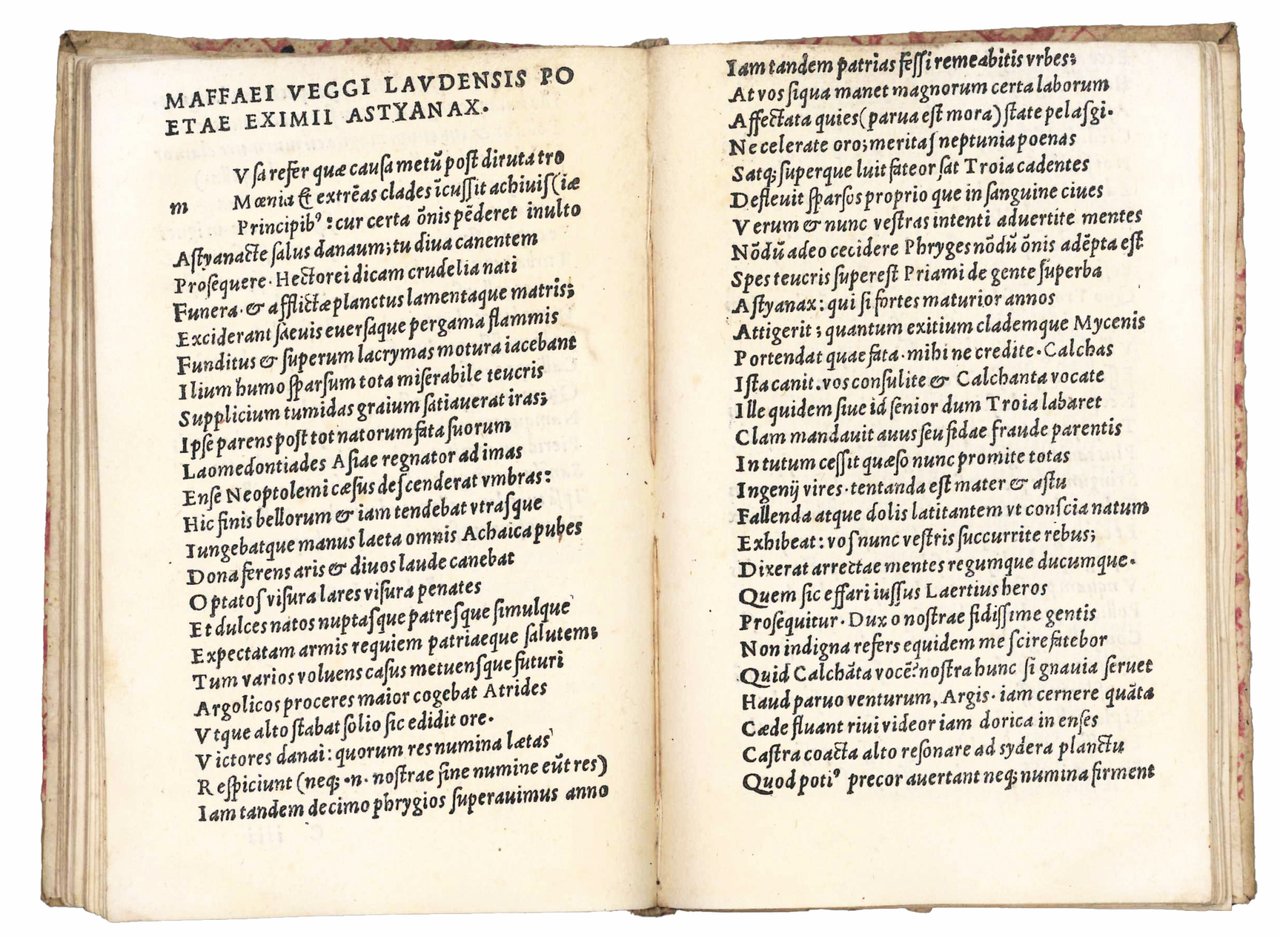 MAFFAEI VEGGI LAVDENSIS PO
ETAE EXIMII ASTYANAX.
Vsa refer quæ causa metũ post diruta tro
m Mœnia & extrẽas clades ĩcussit achiuis (iæ
Principibꝰ: cur certa õnis pẽderet inulto
Astyanacte salus danaum; tu diua canentem
Prosequere· Hectorei dicam crudelia nati
Funera· & afflictæ planctus lamentaque matris;
Exciderant sæuis euersaque pergama flammis
Funditus & superum lacrymas motura iacebant
Ilium humo sparsum tota miserabile teucris
Supplicium tumidas graium satiauerat iras;
Ipse parens post tot natorum fata suorum
Laomedontiades Asiae regnator ad imas
Ense Neoptolemi cæsus descenderat vmbras:
Hic finis bellorum & iam tendebat vtrasque
Iungebatque manus laeta omnis Achaica pubes
Dona ferens aris & diuos laude canebat
Optatos visura lares visura penates
Et dulces natos nuptasque patresque simulque
Expectatam armis requiem patriaeque salutem:
Tum varios voluens casus metuensque futuri
Argolicos proceres maior cogebat Atrides
Vtque alto stabat solio sic edidit ore·
Victores danai: quorum res numina lætas
Respiciunt (neqꝫ ·n· nostrae sine numine eũt res)
Iam tandem decimo phrygios superauimus anno
Iam tandem patrias fessi remeabitis vrbes:
At vos siqua manet magnorum certa laborum
Affectata quies (parua est mora) state pelasgi·
Ne celerate oro; meritas neptunia poenas
Satqꝫ superque luit fateor sat Troia cadentes
Defleuit sparsos proprio que in sanguine ciues
Verum & nunc vestras intenti aduertite mentes
Nõdũ adeo cecidere Phryges nõdũ õnis adẽpta est
Spes teucris superest Priami de gente superba
Astyanax: qui si fortes maturior annos
Attigerit; quantum exitium clademque Mycenis
Portendat quae fata· mihi ne credite· Calchas
Ista canit. vos consulite & Calchanta vocate
Ille quidem siue id senior dum Troia labaret
Clam mandauit auus seu fidae fraude parentis
In tutum cessit quæso nunc promite totas
Ingenij vires· tentanda est mater & astu
Fallenda atque dolis latitantem vt conscia natum
Exhibeat: vos nunc vestris succurrite rebus;
Dixerat arrectae mentes regumque ducumque·
Quem sic effari iussus Laertius heros
Prosequitur· Dux o nostrae fidissime gentis
Non indigna refers equidem me scire fatebor
Quid Calchãta vocẽ? nostra hunc si gnauia seruet
Haud paruo venturum, Argis· iam cernere quãta
Cæde fluant riui videor iam dorica in enses
Castra coacta alto resonare ad sydera planctu
Quod potiꝰ precor auertant neqꝫ numina firment